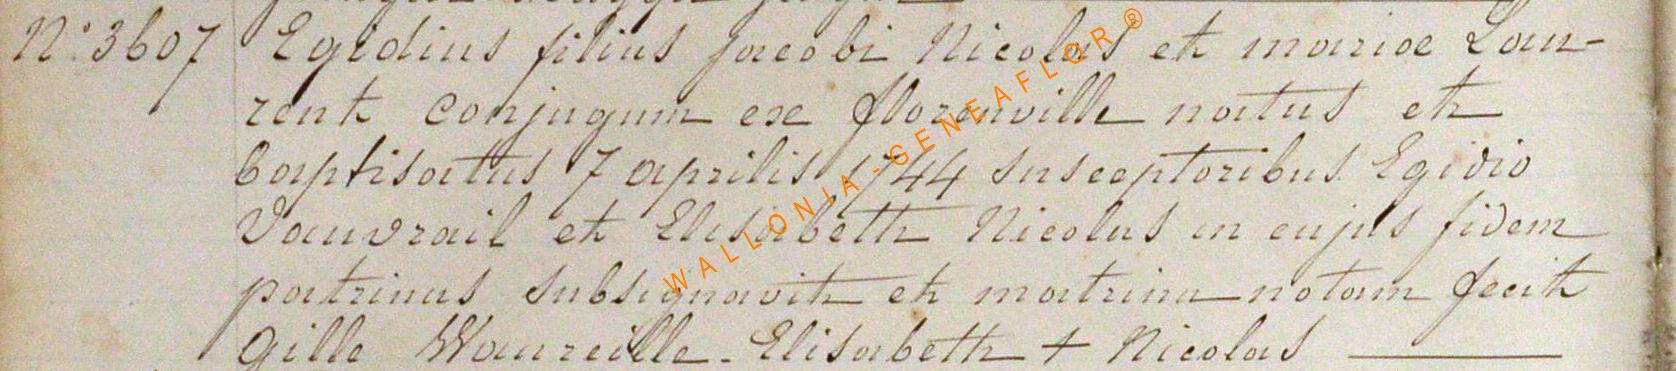 N° 3607 Egidius filius jacobi Nicolas et mariae Lau-
rent conjugum ex florenville natus et
baptisatus 7 aprilis 1744 susceptoribus Egidio
Vauvrail et Elisabeth Nicolas in cujus fidem
patrinus subsignavit et matrina notam fecit
Gille Waureille - Elisabeth + Nicolas
WALLONIA-GENEAFLOR®